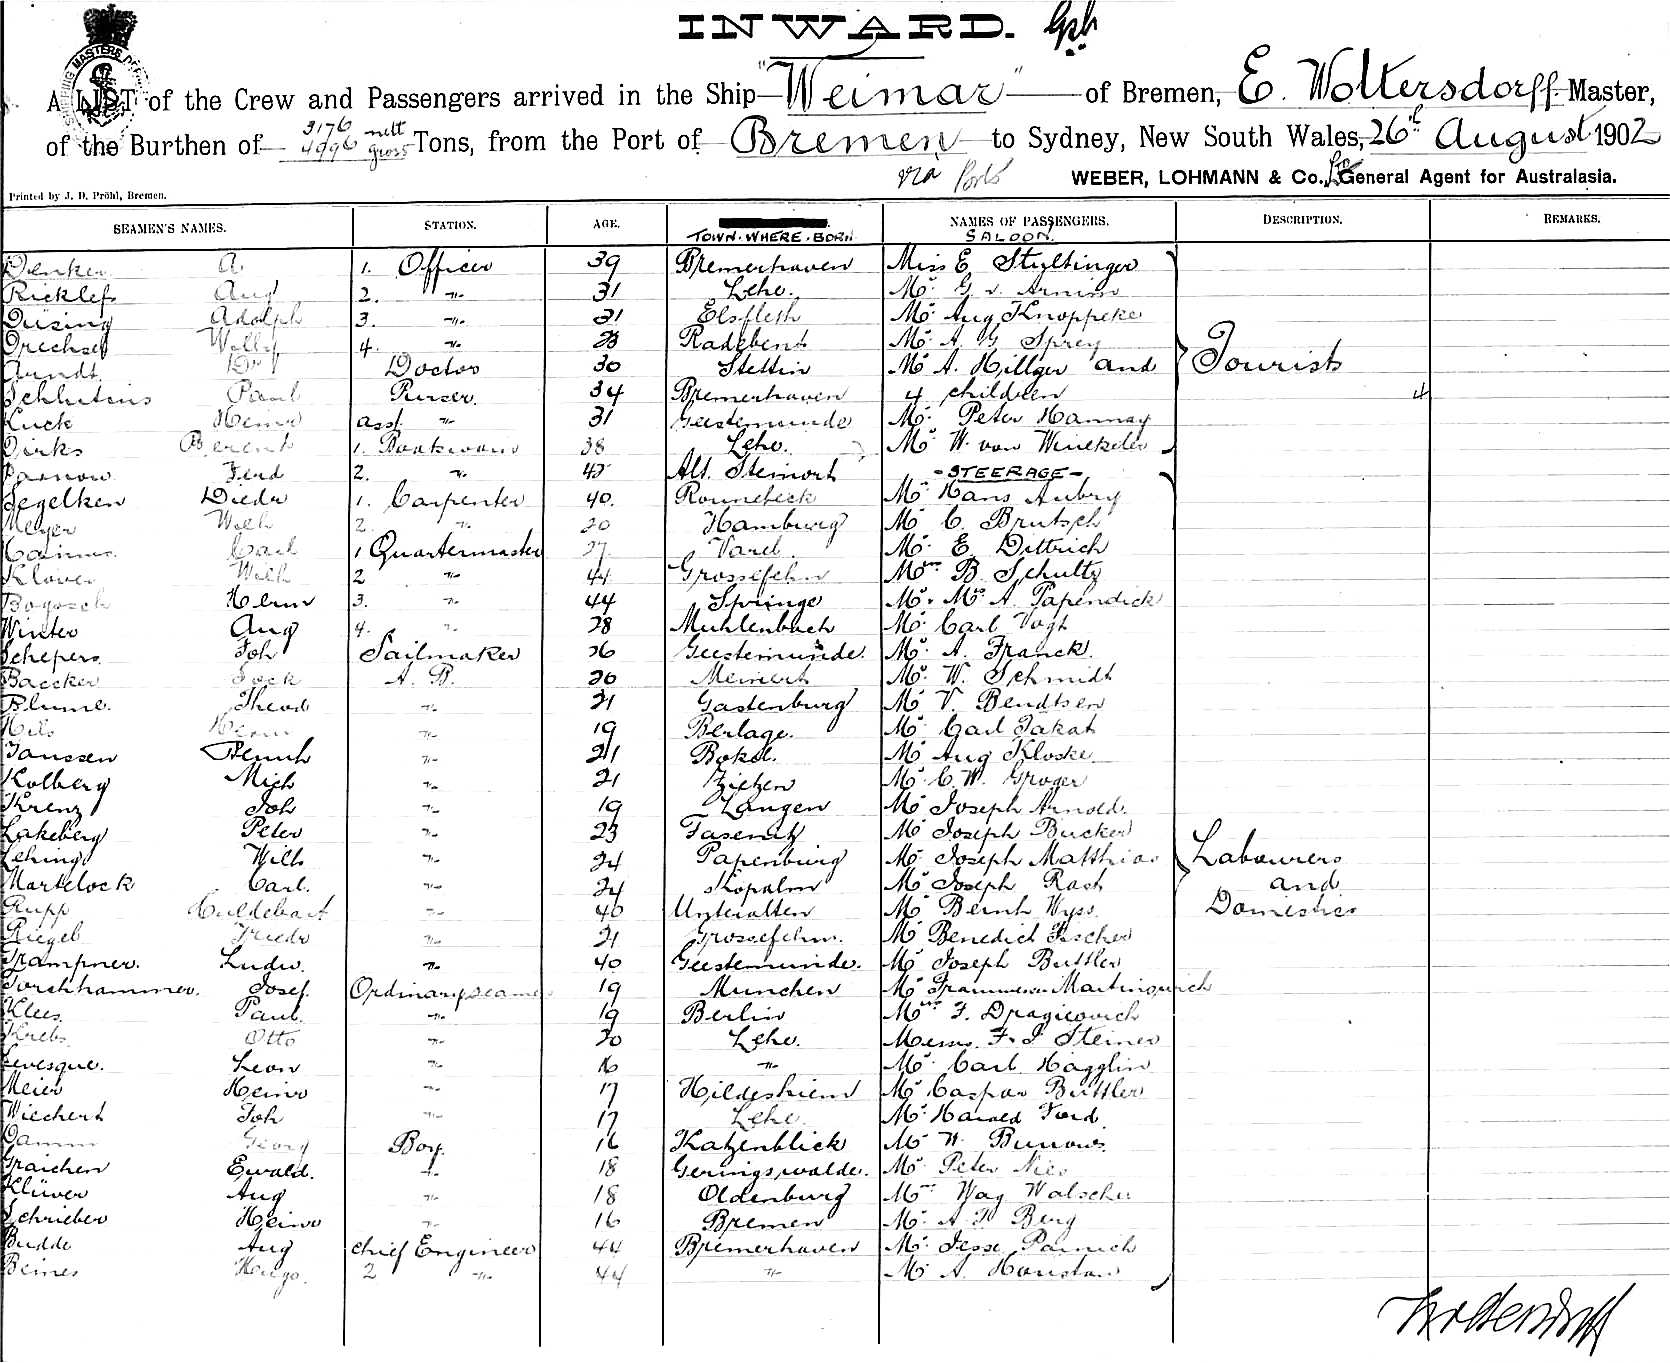 INWARD.
A LIST of the Crew and Passengers arrived in the Ship "Weimar" of Bremen, E. Woltersdorff Master,
of the Burthen of 3176 nett 4996 gross Tons, from the Port of Bremen to Sydney, New South Wales, 26th August 1902
via Ports WEBER, LOHMANN & Co., General Agent for Australasia.
Printed by J. D. Pröhl, Bremen.
SEAMEN'S NAMES. STATION. AGE. TOWN WHERE BORN NAMES OF PASSENGERS. DESCRIPTION. REMARKS.
SALOON.
Denker A. 1. Officer 39 Bremerhaven Miss E Styltinger
Ricklefs Aug 2. " 31 Lehe. Mr. G. v. Arnim
Düsing Adolph 3. " 31 Elsfleth Mr. Aug Knoppeke
Drechsel Willy 4. " 28 Radebent Mr. A. G Sprey
Arndt Dr Doctor 30 Stettin Mr A. Hillger and Tourists
Schluteins Paul Purser. 34 Bremerhaven 4 children 4
Kuck Heinr asst. " 31 Geestemunde Mr. Peter Hannay
Dirks Berent 1. Boatswain 38 Lehe. Mr W. von Winckeler
Parnow Ferd 2. " 42 Alt. Steinort - STEERAGE -
Segelken Diedr 1. Carpenter 40. Ronnebeck Mr Hans Aubry
Meyer Wilh 2. " 20 Hamburg Mr C. Brutsch
Carl 1 Quartermaster 27. Varel. Mr. E. Dittrich
Kluver Wilh 2 " 44 Grossefehn Mrs B. Schultz
Herm 3. " 44 Springe Mr. Mrs A. Papendick
Winter Aug 4. " 28 Muhlenbach Mr. Carl Vogt
Schepers Joh Sailmaker 26 Geestemunde. Mr. A. Franck.
Baecker Jack A. B. 20 Meinert Mr. W. Schmidt
Blume. Theod " 21 Gastenburg Mr V. Bendtsen
Hils Herm " 19 Berlage. Mr Carl Jakat
Janssen Heinrh " 21 Bokel. Mr Aug Kloske
Kolberg Mich " 21 Zietzen Mr. C. W. Groger
Krenz Joh " 19 Langen Mr Joseph Arnold.
Lakeberg Peter " 23 Tasenitz Mr Joseph Bucker
Lehing Wilh " 24 Papenburg Mr Joseph Matthias Labourers
Martelock Carl. " 24 Skopalm Mr Joseph Rast and
Rupp Huldebart " 40 Unteralten Mr Bernh Wyss. Domestics
Riegel Friedr " 21 Grossefehn. Mr Benedict Fischer
Trampner. Ludw. " 40 Geestemunde. Mr Joseph Buttler
Forchhammer. Josef. Ordinary seaman 19 Munchen Mr Martinovich
Klees Paul. " 19 Berlin Mrs F. Dragicovich
Krebs Otto " 20 Lehe. Messrs. F. J Steiner
Levesque. Leon " 16 " Mr. Carl Hagglin
Meier Heinr " 17 Hildeshiem Mr Caspar Buttler
Wiechert Joh " 17 Lehe Mr. Harold Ford
Damm Georg Boy. 16 Katzenblick Mr W. Burrows.
Graichen Ewald. " 18 Geringswalde. Mr Peter Nico
Klüver Aug " 18 Oldenburg Mrs Way Walscher
Schrieber Heinr " 16 Bremen Mr. A. H Berg
Budde Aug Chief Engineer 44 Bremerhaven Mr. Jesse Parnich
Beines Hugo. 2 " 44 " Mr. A. Houston
Woltersdorff